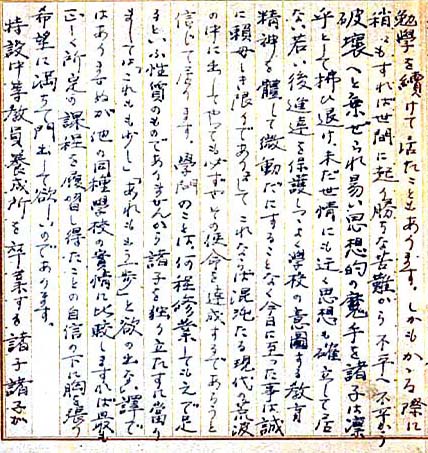 勉學を續けて居たこともあります。しかもかゝる際に
稍〻もすれば世間に起り勝ちな苦難から不平へ不平から
破壞へと乘ぜられ易い思想的の魔手を諸子は凛
乎として拂ひ退け、未だ世情にも迂く思想も確立して居
ない若い後進達を保護しつゝよく學校の意圖する教育
精神を體して微動だにすることなく今日に至つた事は誠
に賴母しき限りでありましてこれならば混沌たる現代の荒波
の中に出してやつても必ずやその使命を達成するであらうと
信じて居ります。學問のことは何程修業してもそれで足
るといふ性質のものでありませんから諸子を獨り立たすに當り
ましては「これももう少し」「あれももう一步」と欲の出ない譯で
はありませぬが他の同種學校の實情に比較しますれば最も
正しく所定の課程を履習し得たことの自信の下に胸を張り
希望に滿ちて門出して欲しいのであります。
特設中等教員養成所を卒業する諸子諸子が